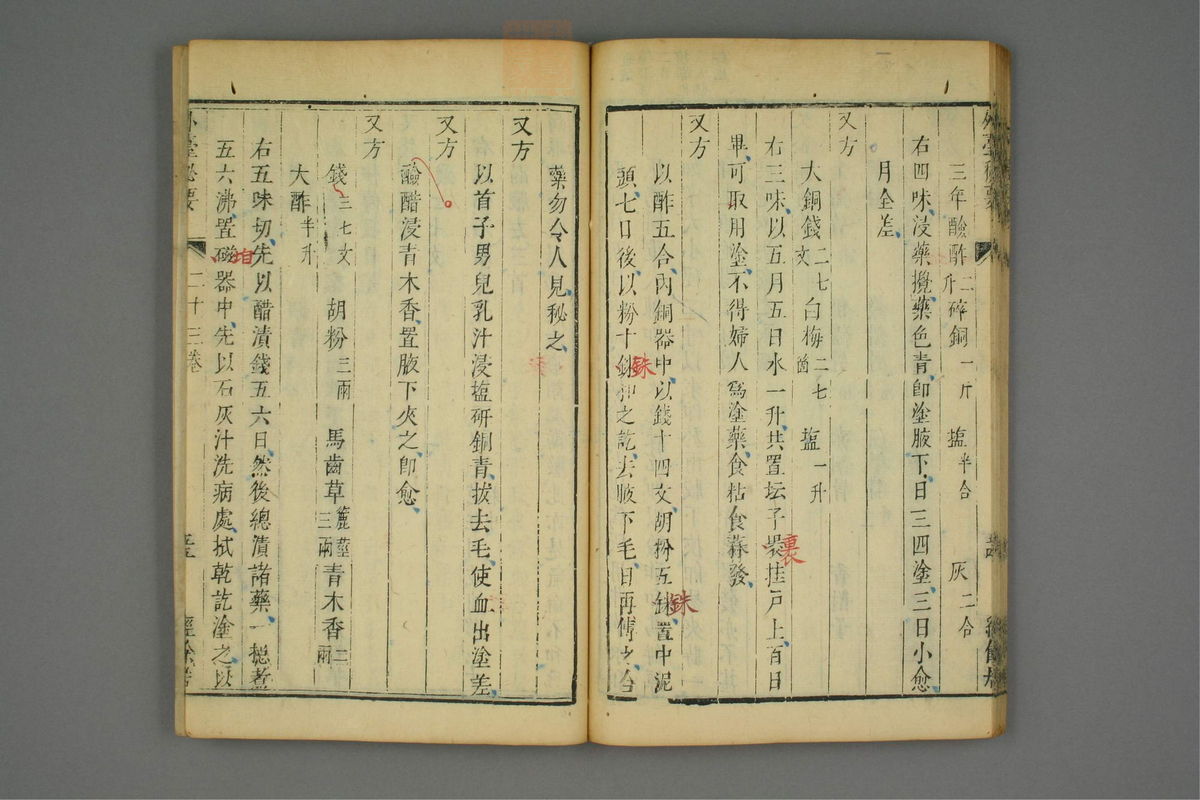 三年醶酢二升碎銅一斤塩半合灰二合
右四味浸藥攪藥色青即塗腋下日三四塗三日小愈
月全差
又方
大銅錢二七文白梅二七箇塩一升
右三味以五月五日水一升共置坛子裴挂戸上百日
裏
畢可取用塗不得婦人爲塗藥食粘食蒜發
又方
以酢五合內銅器中以錢十四文胡粉五銖置中泥
銖
頭七日後以粉十銖和之訖去腋下毛日再傅之合
銖
藥勿令人見秘之
又方
以首子男兒乳汁浸塩研銅青拔去毛使血出塗差
又方
醶醋浸青木香置腋下夾之即愈
又方
錢三七文胡粉三兩馬齒草麄莖三兩青木香二兩
大酢半升
右五味切先以醋漬錢五六日然後總漬諸藥一
五六沸置磁器中先以石灰汁洗病處拭乾訖塗之以
外臺秘要
二十三卷